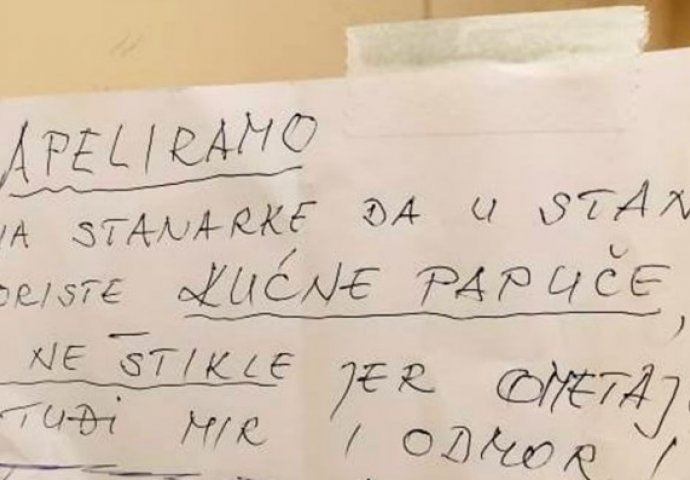 APELIRAMO
NA STANARKE DA U STAN
ORISTE KUĆNE PAPUČE,
NE ŠTIKLE JER OMETAJU
TUĐI MIR I ODMOR!